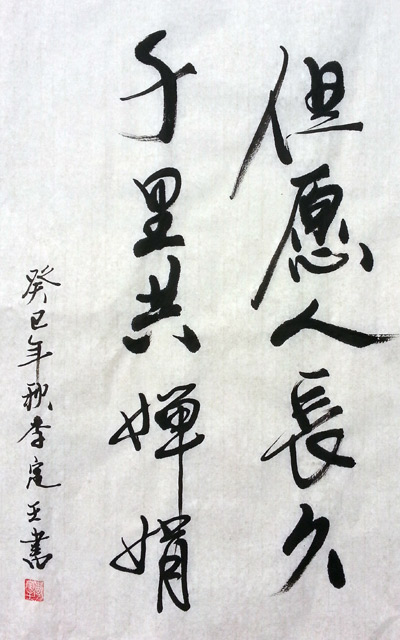 但愿人長久
千里共婵娟
癸巳年秋李定王書